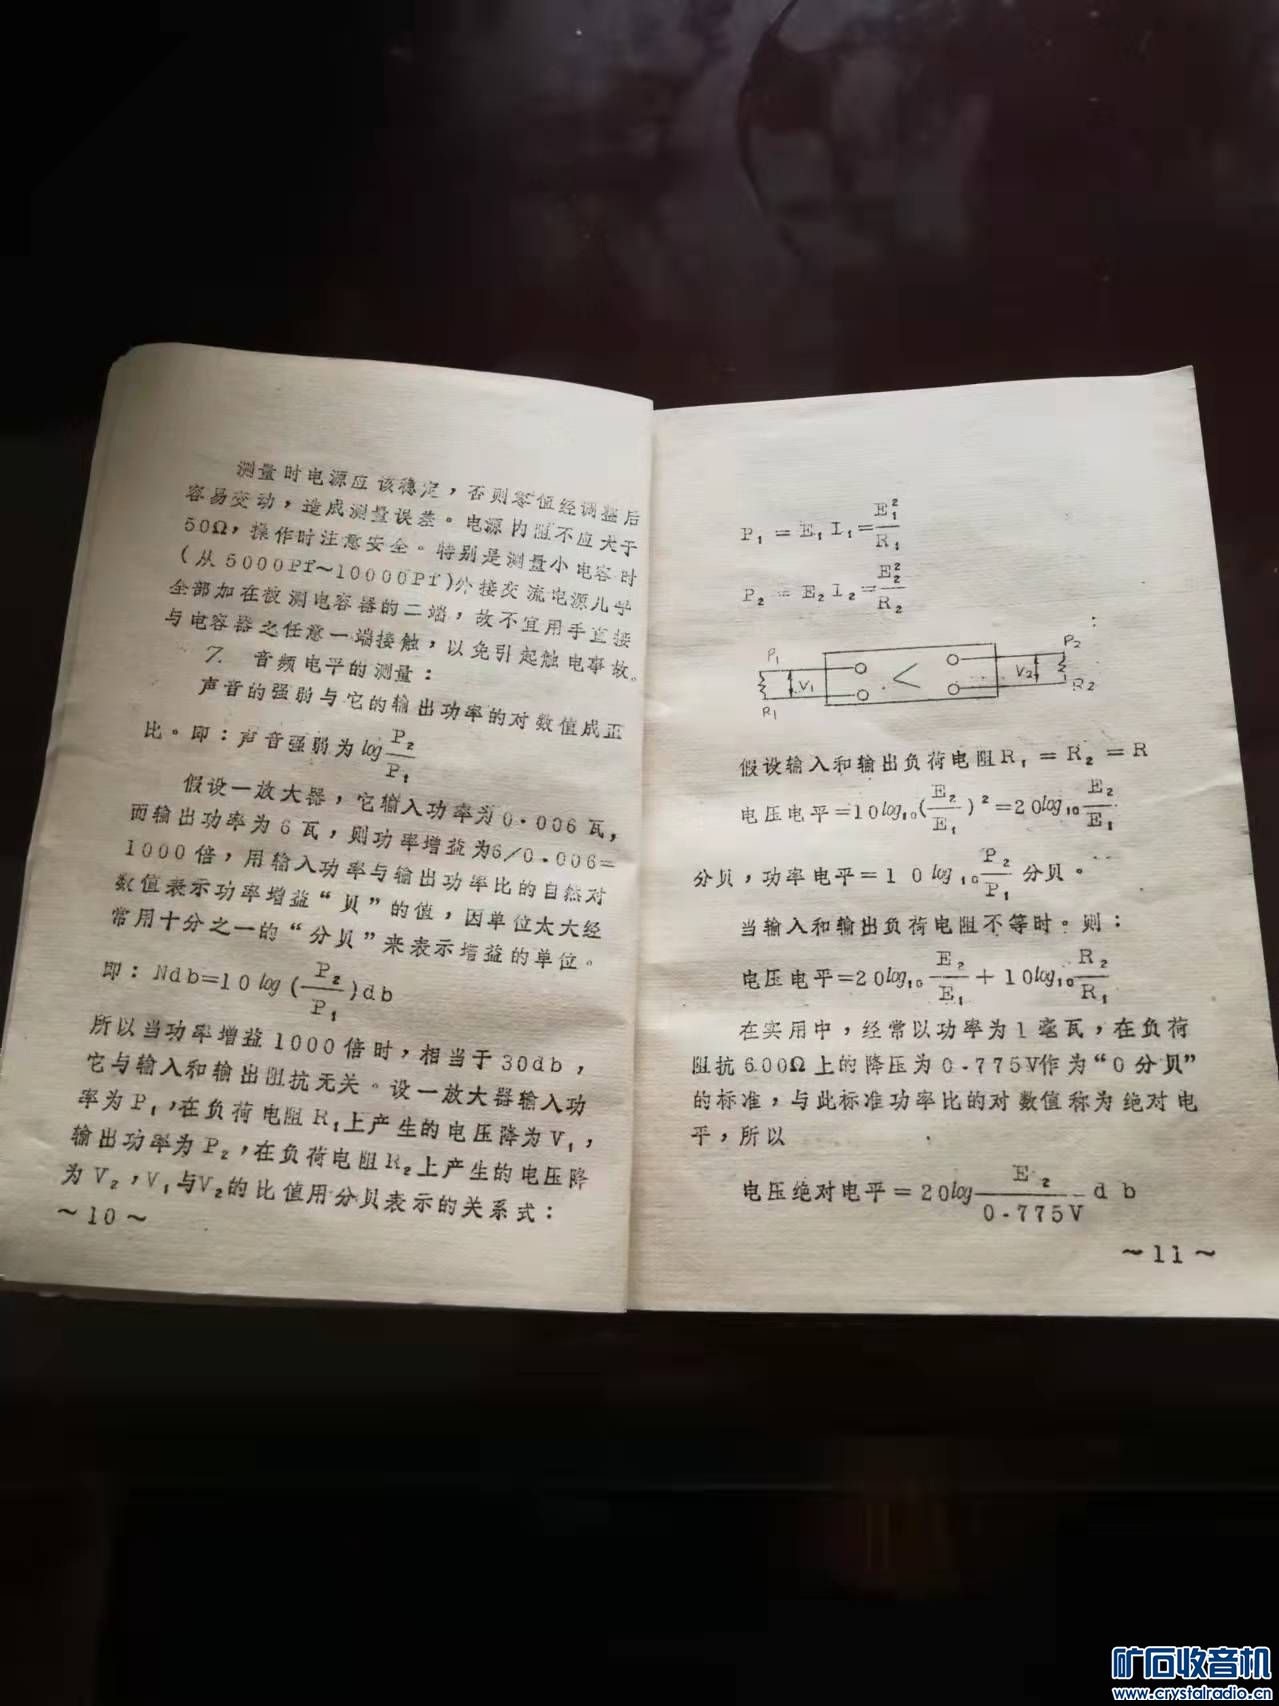 测量时电源应该稳定，否则零值经调整后
容易变动，造成测量误差。电源内阻不应大于
50Ω，操作时注意安全。特别是测量小电容时
(从5000Pf～10000Pf)外接交流电源几乎
全部加在被测电容器的二端，故不宜用手直接
与电容器之任意一端接触，以免引起触电事故。
7. 音频电平的测量：
声音的强弱与它的输出功率的对数值成正
比。即：声音强弱为log P₂/P₁
假设一放大器，它输入功率为0.006瓦，
而输出功率为6瓦，则功率增益为6/0.006=
1000倍，用输入功率与输出功率比的自然对
数值表示功率增益“贝”的值，因单位太大经
常用十分之一的“分贝”来表示增益的单位。
即：Ndb=10log(P₂/P₁)db
所以当功率增益1000倍时，相当于30db，
它与输入和输出阻抗无关。设一放大器输入功
率为P₁,在负荷电阻R₁上产生的电压降为V₁，
输出功率为P₂,在负荷电阻R₂上产生的电压降
为V₂，V₁与V₂的比值用分贝表示的关系式：
～10～
P₁=E₁I₁=E₁²/R₁
P₂=E₂I₂=E₂²/R₂
P₁ P₂
V₁ V₂
R₁ R₂
假设输入和输出负荷电阻R₁=R₂=R
电压电平=10log₁₀(E₂/E₁)²=20log₁₀E₂/E₁
分贝，功率电平=10log₁₀P₂/P₁分贝。
当输入和输出负荷电阻不等时。则：
电压电平=20log₁₀E₂/E₁+10log₁₀R₂/R₁
在实用中，经常以功率为1毫瓦，在负荷
阻抗600Ω上的降压为0.775V作为“0分贝”
的标准，与此标准功率比的对数值称为绝对电
平，所以
电压绝对电平=20log E₂/0.775V db
～11～
矿石收音机
www.crystalradio.cn